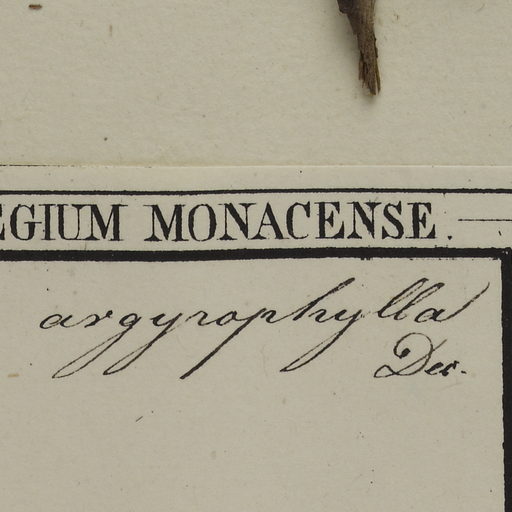 EGIUM MONACENSE.
argyrophylla
Dec.